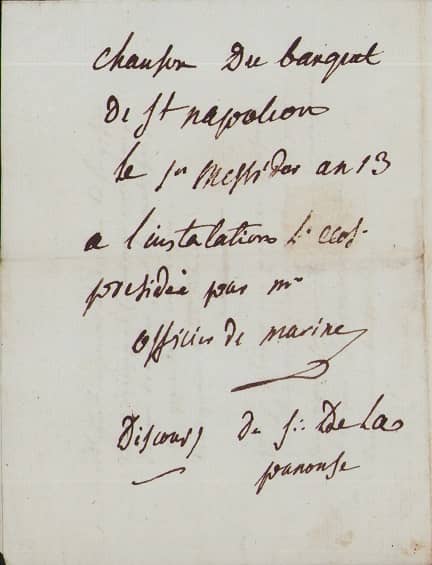 chanson Du banquet
De St napoleon
le 1er Messidor an 13
a l'instalation
presidée par mr
officier de marine
Discours du f∴ De La
panouse